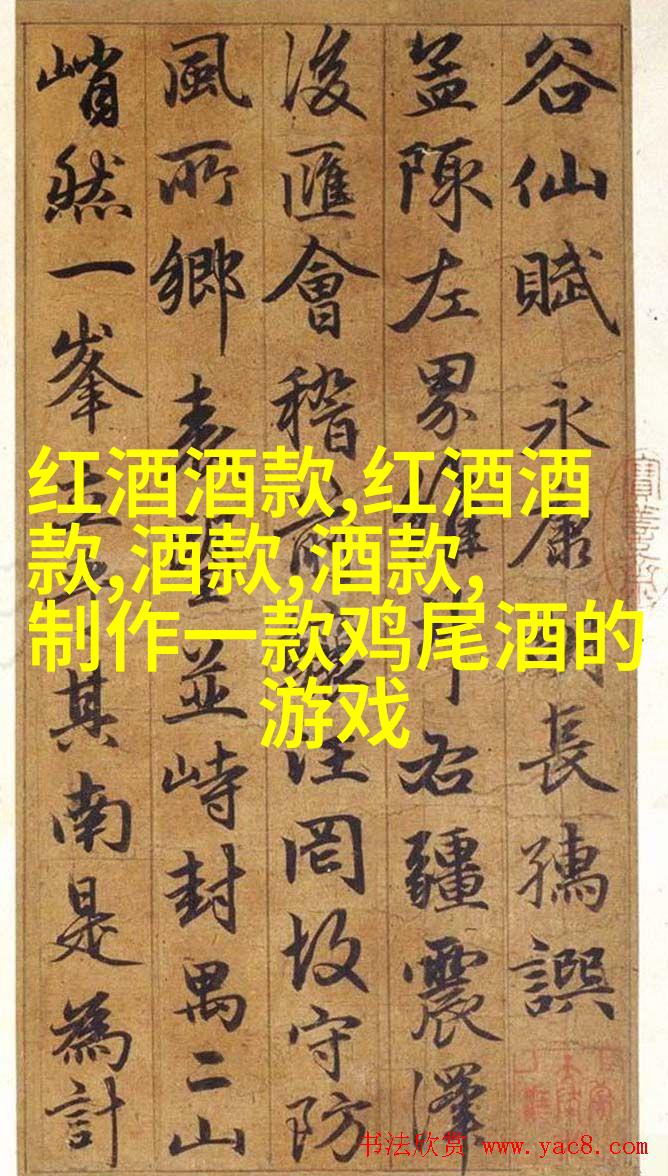 谷仙賦 永康長孺譔
盖陳左界右疆震澤
後匯會稽罔故守防
風所鄉並峙封禺二山
峭然一峯其南是為計
红酒酒款,红酒酒
款,酒款,酒款,
制作一款鸡尾酒的
游戏
书法欣赏 www.yac8.com